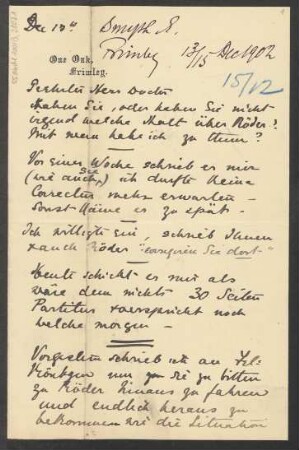 Dec 13th
Smyth E.
Frimley
13/15 Dec 1902
15/12
One Oak,
Frimley.
Geehrter Herr Doctor
Haben Sie, oder haben Sie nicht
irgend welche Macht über Röder?
Mit wem habe ich zu thun?
Vor einer Woche schrieb er mir
(wie auch Sie) ich dürfte keine
Correctur mehr erwarten –
sonst käme es zu spät –
Ich willigte ein schrieb Ihnen
& auch Röder "corrigiren Sie dort"
Heute schickt er mir als
wäre dem nichts 30 Seiten
Partitur & verspricht noch
welche morgen –
Vorgestern schrieb ich an Frl.
Röntgen um sie zu bitten
zu Röder hinaus zu fahren
und endlich heraus zu
bekommen wie die Situation